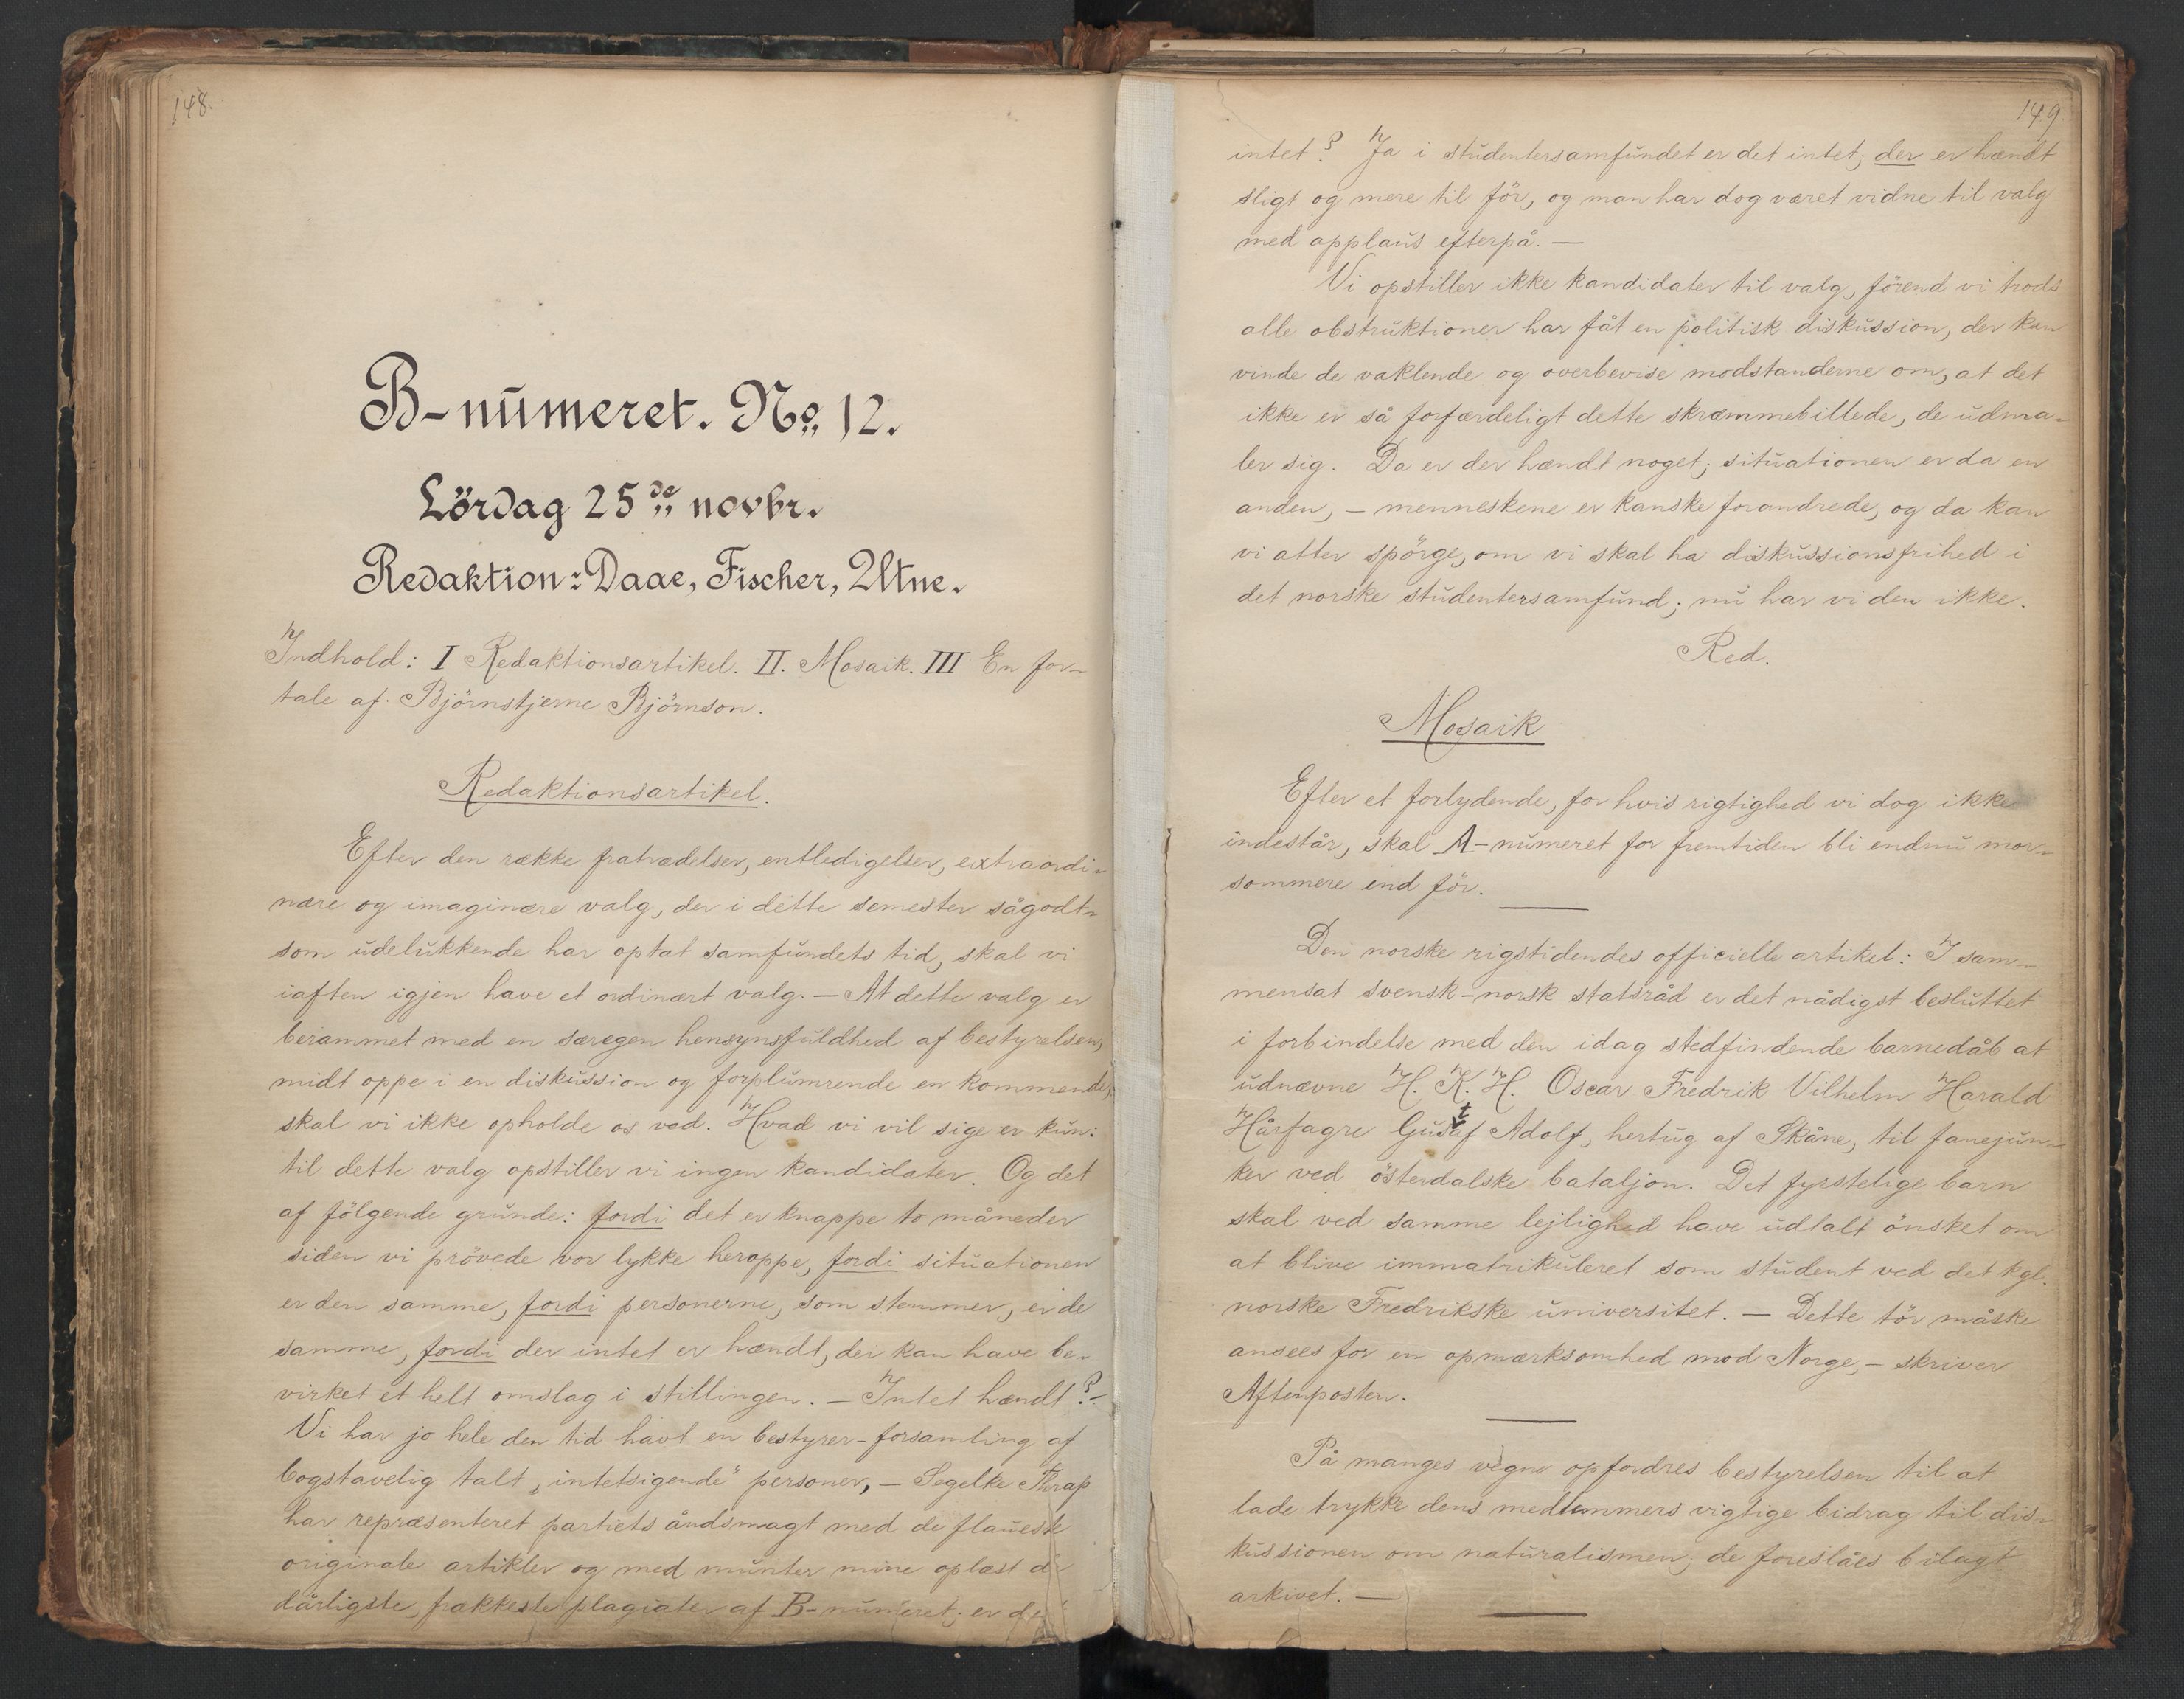 148.
B-numeret. No 12.
Lördag 25de novbr.
Redaktion: Daae, Fischer, Utne.
Indhold: I Redaktionsartikel. II. Mosaik. III En for-
tale af Björnstjerne Björnson.
Redaktionsartikel.
Efter den række fratrædelser, entledigelser, extraordi-
nære og imaginære valg, der i dette semester sågodt-
som udelukkende har optat samfundets tid, skal vi
iaften igjen have et ordinært valg. — At dette valg er
berammet med en særegen hensynsfuldhed af bestyrelsen,
midt oppe i en diskussion og forplumrende en kommende,
skal vi ikke opholde os ved. Hvad vi vil sige er kun:
til dette valg opstiller vi ingen kandidater. Og det
af fölgende grunde: fordi det er knappe to måneder
siden vi prövede vor lykke heroppe, fordi situationen
er den samme, fordi personerne, som stemmer, er de
samme, fordi der intet er hændt, der kan have be-
virket et helt omslag i stillingen. — Intet hændt? -
Vi har jo hele den tid havt en bestyrer-forsamling af
bogstavelig talt „intetsigende" personer, — Segelke Thrap
har repræsenteret partiets åndsmagt med de flaueste
originale artikler og med munter mine oplæst de
dårligste, frækkeste plagiater af B-numeret; er det
149
intet? Ja i studentersamfundet er det intet; der er hændt
sligt og mere til för, og man har dog været vidne til valg
med applaus efterpå. —
Vi opstiller ikke kandidater til valg, förend vi trods
alle obstruktioner har fåt en politisk diskussion, der kan
vinde de vaklende og overbevise modstanderne om, at det
ikke er så forfærdeligt dette skræmmebillede, de udma-
ler sig. Da er der hændt noget; situationen er da en
anden, — menneskene er kanske forandrede, og da kan
vi atter spörge, om vi skal ha diskussionsfrihed i
det norske studentersamfund; nu har vi den ikke.
Red.
Mosaik
Efter et forlydende, for hvis rigtighed vi dog ikke
indestår, skal A-numeret for fremtiden bli endnu mor-
sommere end för.
Den norske rigstidendes officielle artikel: I sam-
mensat svensk-norsk statsråd er det nådigst besluttet
i forbindelse med den idag stedfindende barnedåb at
udnævne H. K. H. Oscar Fredrik Vilhelm Harald
Hårfagre Gustaf Adolf, hertug af Skåne, til fanejun-
ker ved österdalske bataljon. Det fyrstelige barn
skal ved samme lejlighed have udtalt önsket om
at blive immatrikuleret som student ved det kgl.
norske Fredrikske universitet. — Dette tör måske
ansees for en opmærksomhed mod Norge, — skriver
Aftenposten.
På manges vegne opfordres bestyrelsen til at
lade trykke dens medlemmers vigtige bidrag til dis-
kussionen om naturalismen; de foreslåes bilagt
arkivet. —